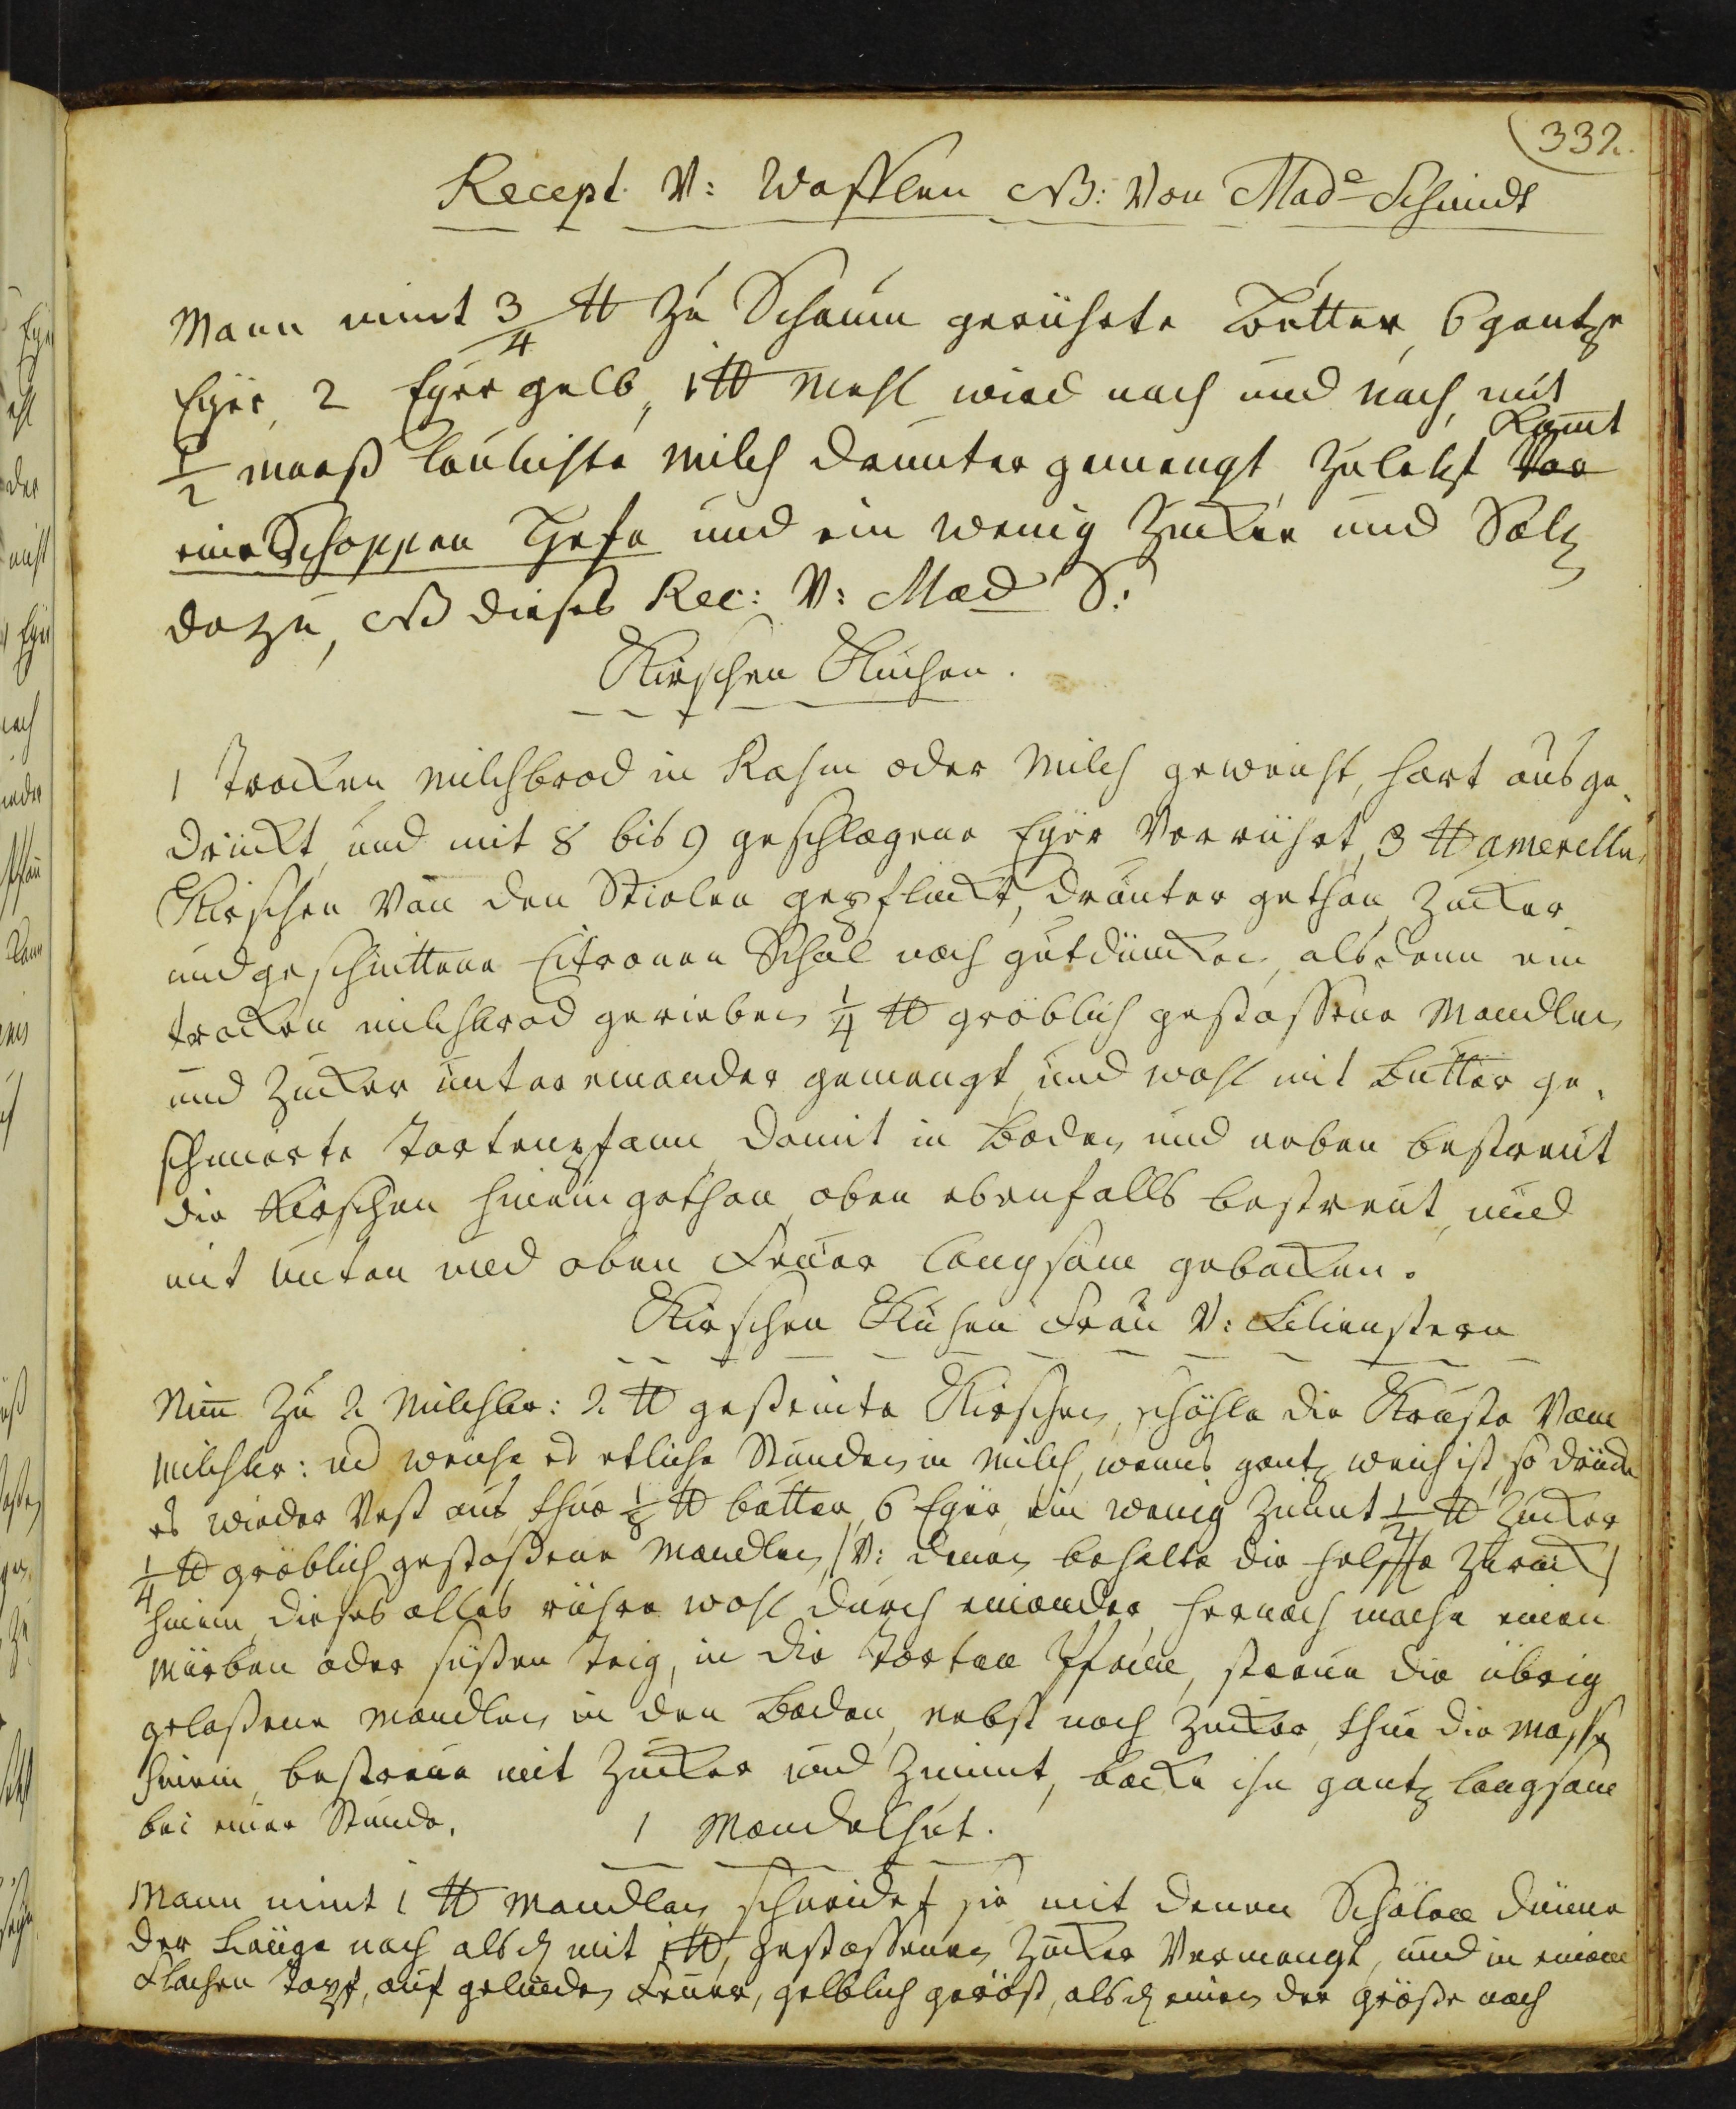 332.
Recept V: Wafflen NB: Von Mad<sup>e</sup> Schmidt
Mann nimt 3/4 ℔ zu Schaum gerührte Butter, 6 gantze
Eÿer, 2 Eÿer gelb, 1 ℔ Mehl wird nach und nach, mit
1/2 maaß laulichte Milch drunter gemengt, zuletzt Vor
Komt
eine Schoppen Hefe und ein wenig Zucker und Saltz
dazu, NB dieses Rec: V: Mad S:
Kirschen Kuchen.
1 trocken Milchbrod in Rahm oder Milch geweicht, hart ausge-
drückt, und mit 8 bis 9 geschlagene Eÿer Verrührt, 3 ℔ amerelln
Kirschen Von den Stielen gepflückt, drunter gethan, Zucker
und geschnittene Citronen Schal nach gutdüncken, alsdann ein
trocken milchbrod gerieben 1/4 ℔ gröblich gestossene Mandlen
und Zucker untereinander gemengt, und wohl mit Butter ge-
schmierte Tortenpfann damit in Boden und neben bestreut
die Kirschen hinein gethan, oben ebenfalls bestreut, und
mit unten und oben Feuer langsam gebacken.
Kirschen Kuchen Frau V: Lilienstern
Nim zu 2 Milchbr: 2 ℔ gesteinte Kirschen, schöhle die Kruste Vom
Milchbr: und weiche es etliche Stunden in Milch, wenns gantz weich ist, so drücke
es wieder Vest aus, thue 1/8 ℔ butter, 6 Eÿer, ein wenig Zimmt 1/4 ℔ Zucker
1/4 ℔ gröblich gestoßene Mandlen, (V: denen behalte die helffte zurück)
hinein, dieses alles rühre wohl durch einander, hernach mache einen
Mürben oder süßen Teig, in die Torten Pfann, streue die übrig
gelaßene Mandlen in den Boden, nebst noch Zucker, thue die Masse
hinein, bestreue mit Zucker und Zimmt, backe ihn gantz langsam
bei einer Stunde.
1 Mandelhut.
Mann nimt 1 ℔ Mandlen, schneidet sie mit denen Schalen dünne
der Länge nach als mit 1 ℔, gestossenen Zucker Vermengt, und in einem
Flachen Topf, auf gelinden Feuer, gelblich geröst, als einen der größe nach